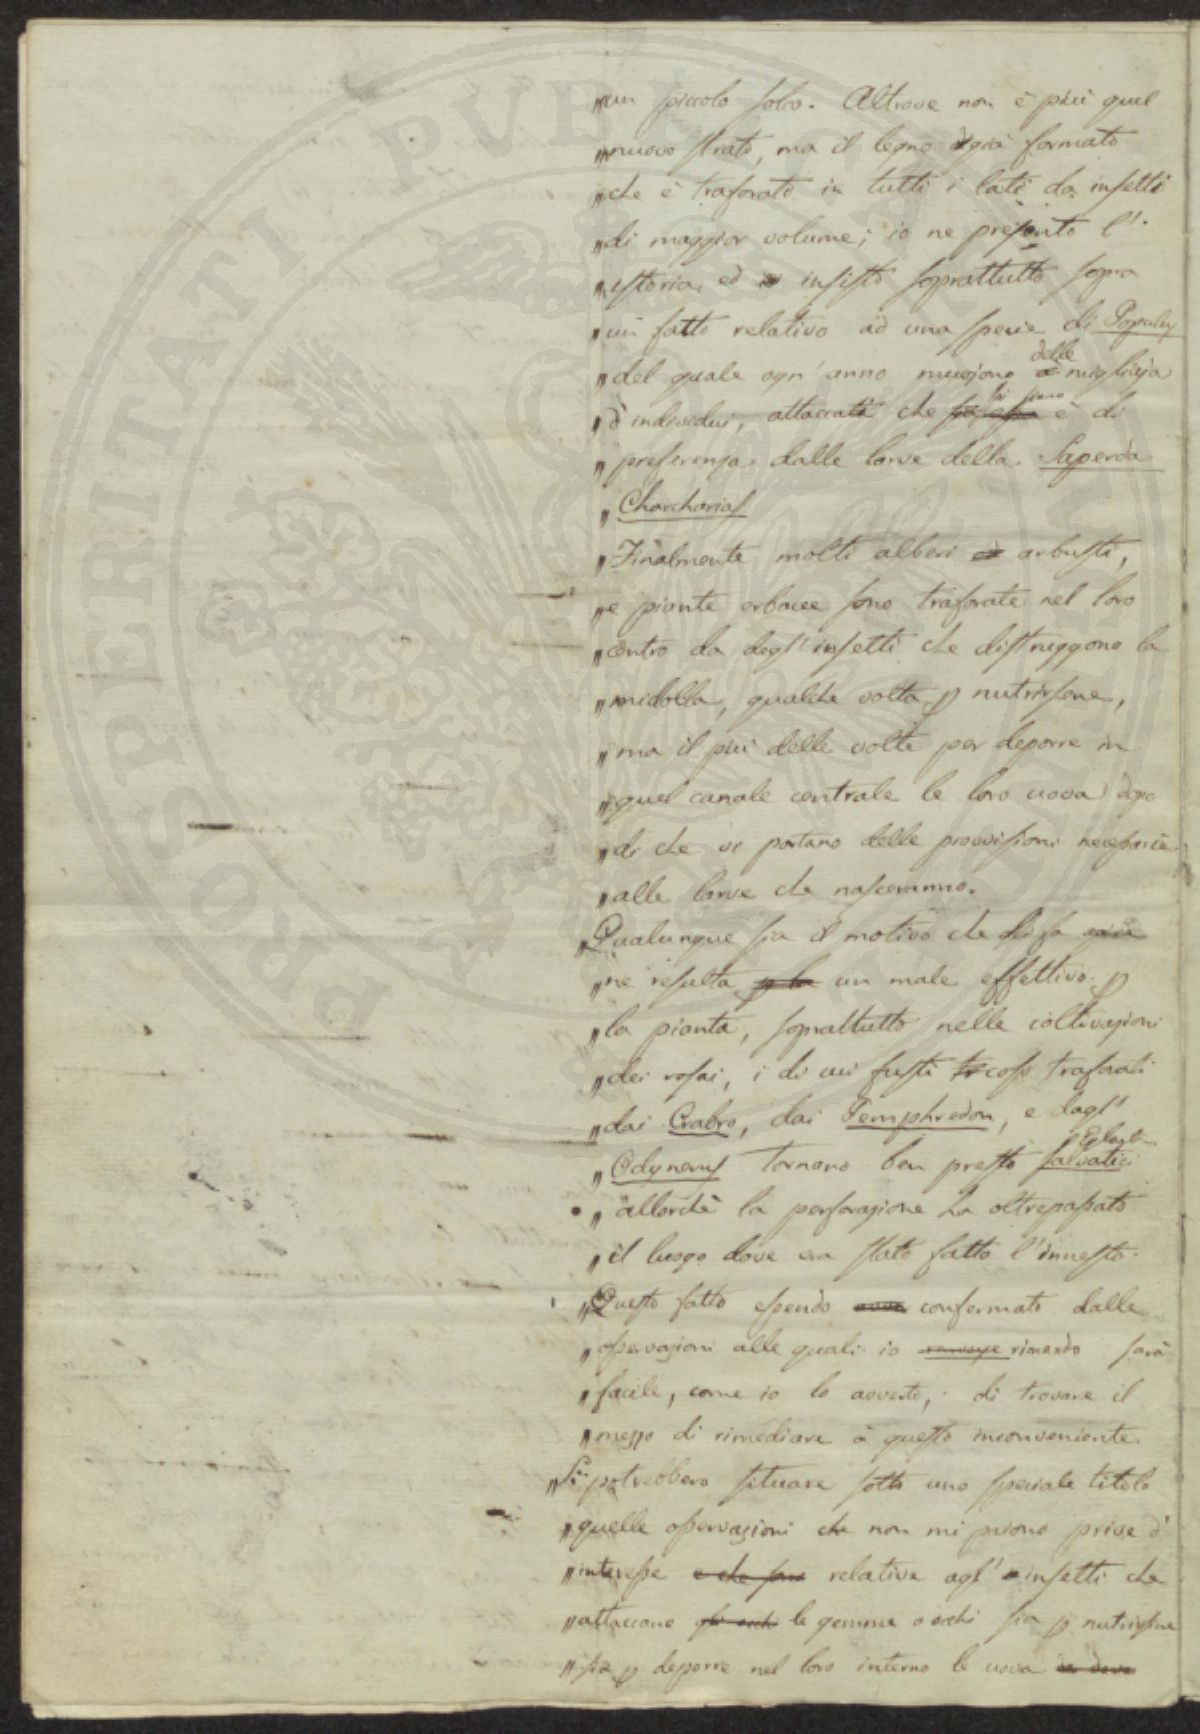 „un piccolo solco. Altrove non è più quel
„nuovo strato, ma il legno già formato
„che è traforato in tutti i lati da insetti
„di maggior volume; io ne presento l'
„istoria, ed insisto soprattutto sopra
„un fatto relativo ad una specie di Populus
„del quale ogn'anno muojono delle migliaja
„d'individui, attaccati che si sono è di
„preferenza dalle larve della Saperda
„Charcharias
„Finalmente molti alberi arbusti,
„e piante erbacee sono traforate nel loro
„centro da degl'insetti che distruggono la
„midolla, qualche volta p nutrirsene,
„ma il più delle volte per deporre in
„quel canale centrale le loro uova dopo
„di che vi portano delle provvisioni necessarie
„alle larve che nasceranno.
„Qualunque sia il motivo che
„ne resulta p la un male effettivo p
„la pianta, soprattutto nelle coltivazioni
„dei rosai, i di cui fusti così traforati
„dai Crabro, dai Pemphredon, e dagl'
„Odynerus tornano ben presto salvatici
„allorchè la perforazione ha oltrepassato
„il luogo dove era stato fatto l'innesto.
„Questo fatto essendo confermato dalle
„osservazioni alle quali io renvoye rimando sarà
„facile, come io lo avverto, di trovare il
„mezzo di rimediare a questo inconveniente.
„Si potrebbero situare sotto uno speciale titolo
„quelle osservazioni che non mi pajono prive d'
„interesse e che sono relative agl'insetti che
„attaccano gli occhi le gemme o occhi sia p nutrirsene
„sia p deporre nel loro interno le uova in dove
POSPERITATI PUBLICAE